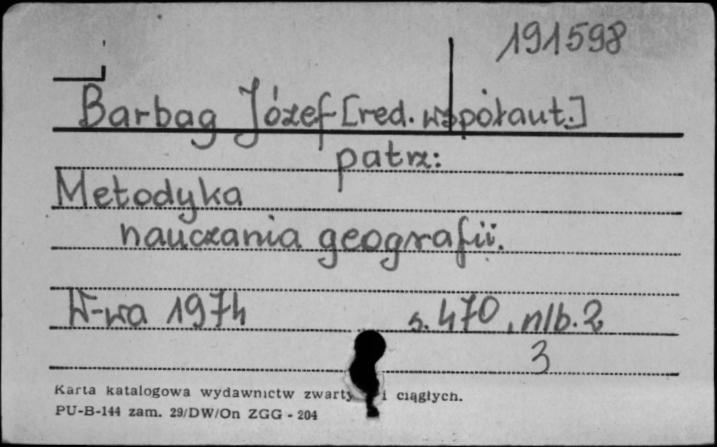 191598
Barbag Józef [red. współaut.]
patrz:
Metodyka
nauczania geografii.
W-wa 1974
s. 470, nlb. 2
3
Karta katalogowa wydawnictw zwarty i ciągłych.
PU-B-144 zam. 29/DW/On ZGG - 204